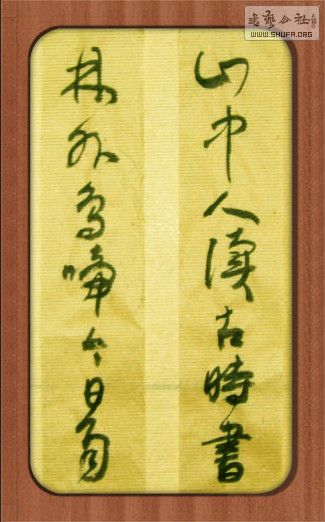 書藝公社
WWW.SHUFA.ORG
山中人讀古時書
林外鳥啼今日